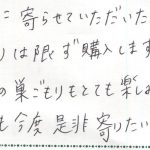 に寄らせていただいた
りは限ず購入します
の巣ごもりもとても楽しみ
も今度是非寄りたい